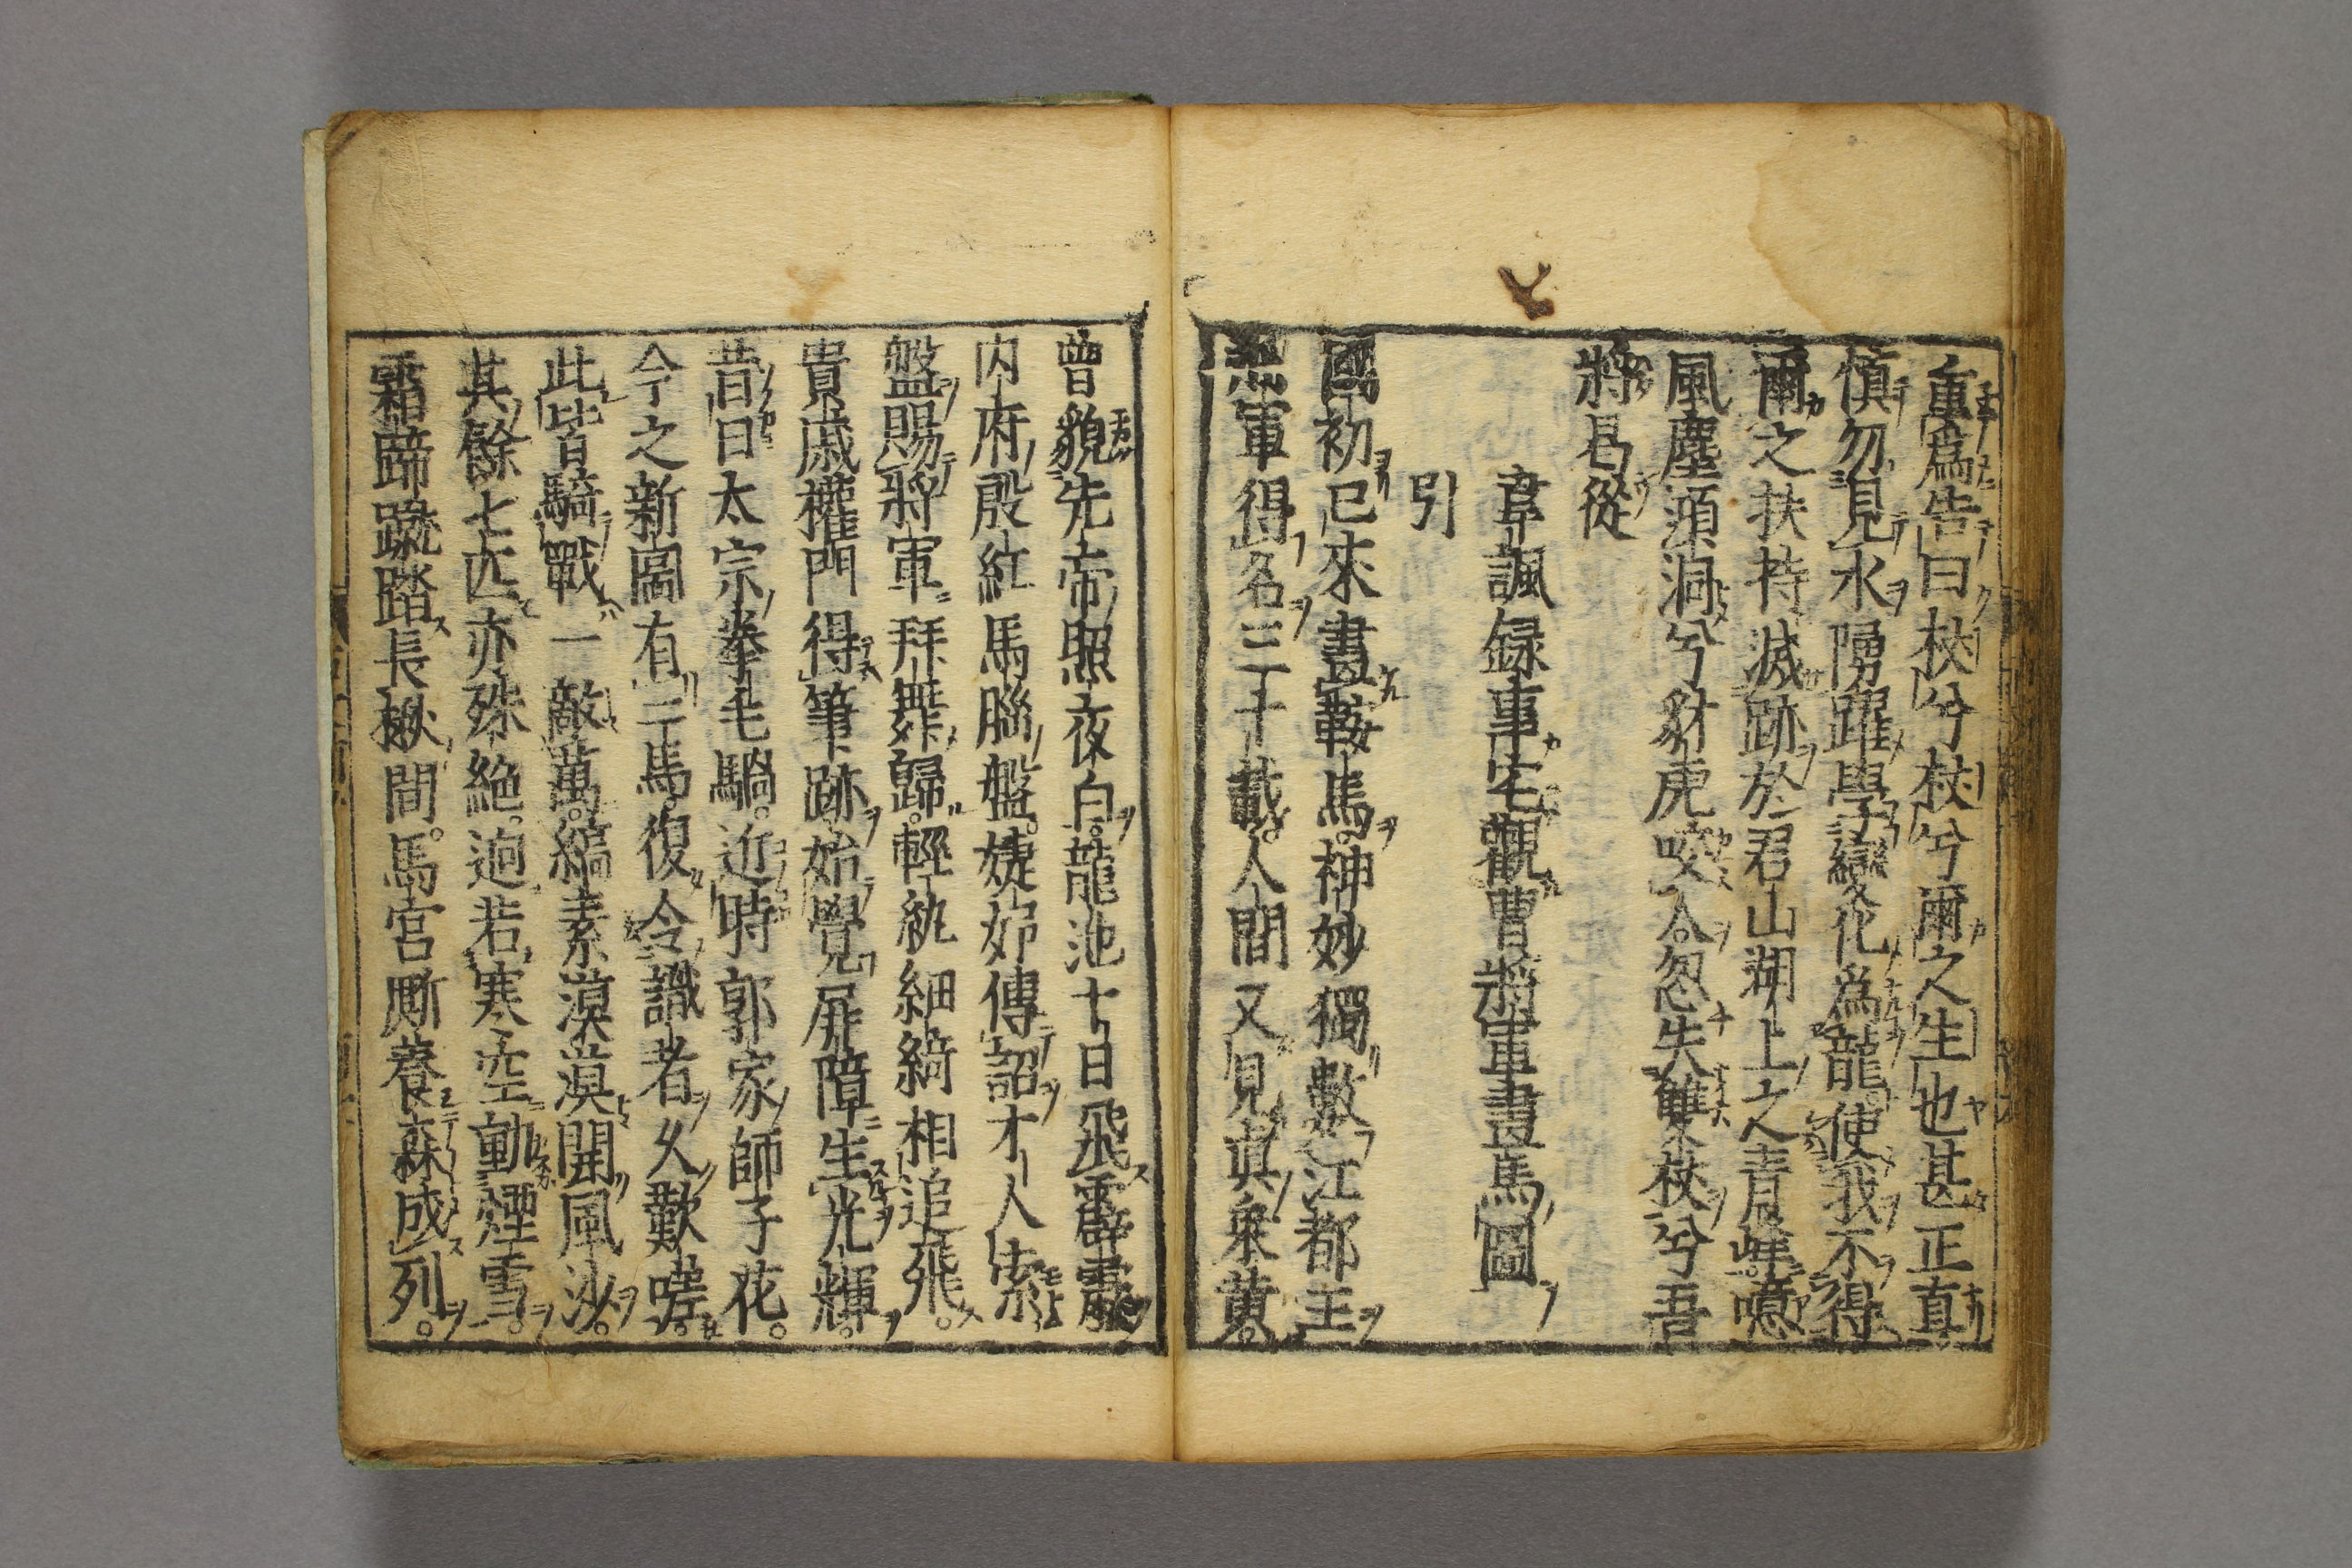 重爲告曰杖兮杖兮爾之生也甚正直
慎勿見水踴躍學變化爲龍使我不得
爾之扶持滅跡於君山湖上之青峰噫
風塵澒洞兮豺虎咬人忽失雙杖兮吾
將曷從
韋諷録事宅觀曹將軍畫馬圖
引
國初已來畫鞍馬。神妙獨數江都王
將軍得名三十載。人間又見真乘黄。
曽貌先帝照夜白。龍池十日飛霹靂
内府殷紅馬腦盤。婕妤傳詔才人索
盤賜將軍拜舞歸。輕紈細綺相追飛。
貴戚權門得筆跡始覺屏障生光輝。
昔日太宗拳毛騧。近時郭家師子花。
今之新啚有二馬。復令識者乆歎嗟。
此皆騎戰一敵萬。縞素漠漠開風沙。
其餘七匹亦殊絶。逈若寒空動煙雪。
霜蹄蹴踏長楸間。馬宫厮養森成列。